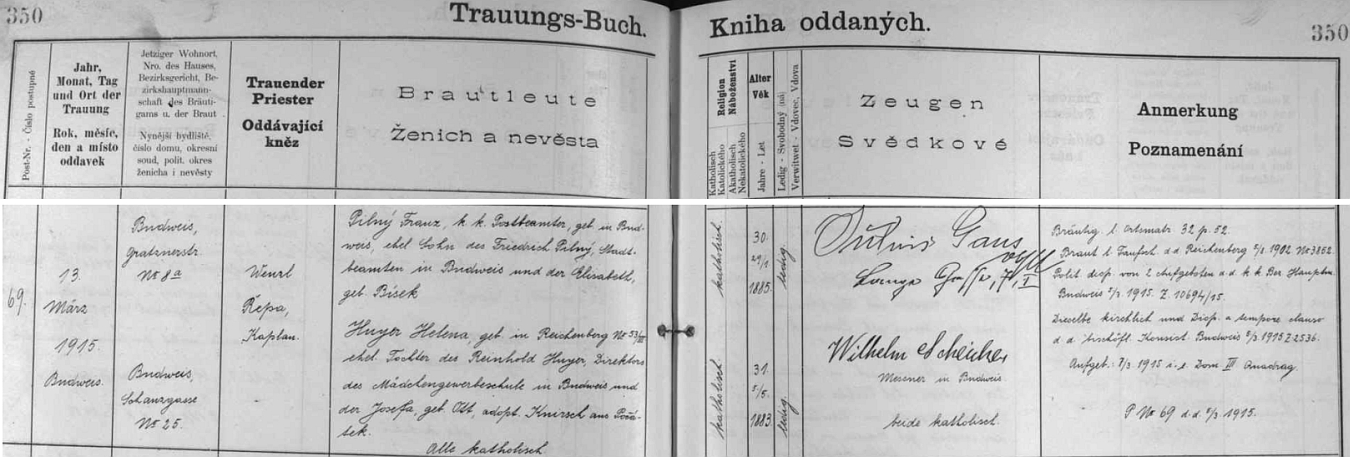 350
Trauungs-Buch.
Kniha oddaných.
350
Post-Nr. - Číslo postupné
Jahr,
Monat, Tag
und Ort der
Trauung
Rok, měsíc,
den a místo
oddavek
Jetziger Wohnort,
Nro. des Hauses,
Bezirksgericht, Be-
zirkshauptmann-
schaft des Bräuti-
gams u. der Braut
Nynější bydliště,
číslo domu, okresní
soud, polit. okres
ženicha i nevěsty
Trauender
Priester
Oddávající
kněz
Brautleute
Ženich a nevěsta
Religion
Náboženství
Katholisch
Katolického
Akatholisch
Nekatolického
Alter
Věk
Jahre - Let
Ledig - Svobodný (ná)
Verwitwet - Vdovec, Vdova
Zeugen
Svědkové
Anmerkung
Poznamenání
69.
13.
März
1915.
Budweis.
Budweis,
Gratznerstr.
No 8a
Budweis,
Schanzgasse
No 25.
Wenzl
Řepa,
Kaplan.
Pilný Franz, k. k. Postbeamter, geb. in Bud-
weis, ehel. Sohn des Friedrich Pilný, Stadt-
beamten in Budweis und der Elisabeth,
geb. Bísek
Huyer Helena, geb. in Reichenberg No 53/
ehel. Tochter des Reinhold Huyer, Direktors
der Mädchengewerbeschule in Budweis und
der Josefa, geb. Ott, adopt. Knirsch aus
Alle katholisch
katholisch.
30.
29/1
1885.
ledig
katholisch.
31.
5/5.
1883.
ledig
Gaus
Lange
Wilhelm Scheicher
Mesner in Budweis.
beide katholisch.
Bräutig. l. Ortsmatr. 32 p. 52.
Braut l. Taufsch. d. d. Reichenberg 1902 No 3862.
Polit. disp. von 2 Aufgeboten d. d. k. k. Bez. Hauptm.
Budweis 1915. Z. 10694/15.
Dieselbe kirchlich und Disp. a tempore clauso
d. d. bischöfl. Konsist. Budweis 1915 Z 2536.
Aufgeb.: 7/3. 1915 i. e. Dom III Quadrag.
P No 69 d. d. 1915.